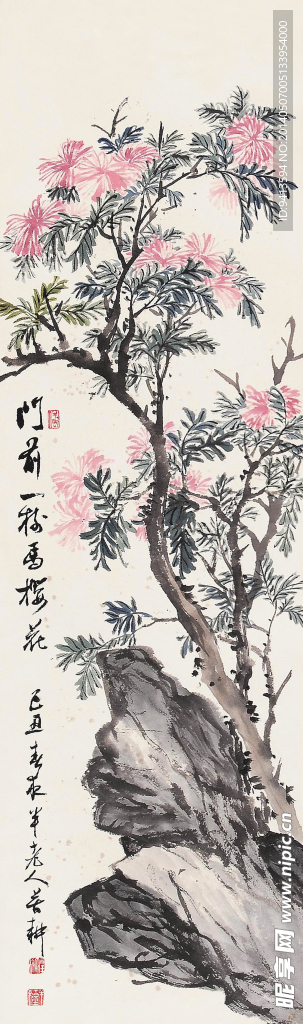 门前一树马樱花
己丑春夜半老人苦耕
ID:9483594 NO:20120507005133954000
昵享网 www.nipic.cn